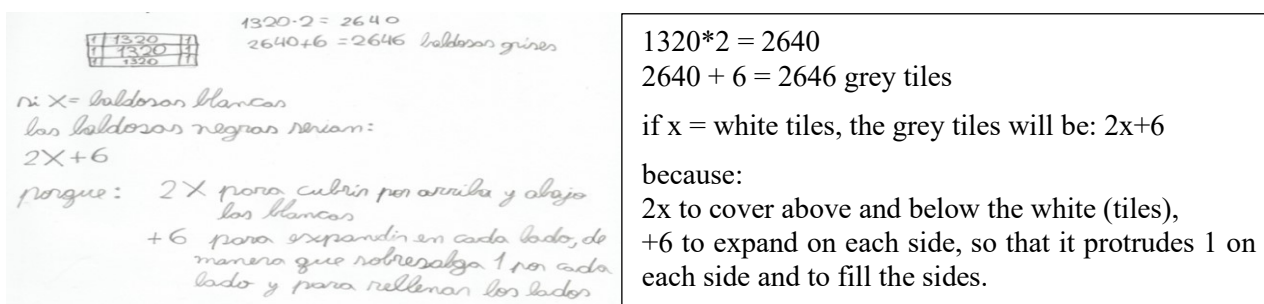 1320·2 = 2640
2640+6 = 2646 baldosas grises
1 1320 1
1 1320 1
1 1320 1
si X= baldosas blancas
las baldosas negras serian:
2X+6
porque: 2X para cubrir por arriba y abajo
las blancas
+6 para expandir en cada lado, de
manera que sobresalga 1 por cada
lado y para rellenar los lados
1320*2 = 2640
2640 + 6 = 2646 grey tiles
if x = white tiles, the grey tiles will be: 2x+6
because:
2x to cover above and below the white (tiles),
+6 to expand on each side, so that it protrudes 1 on
each side and to fill the sides.